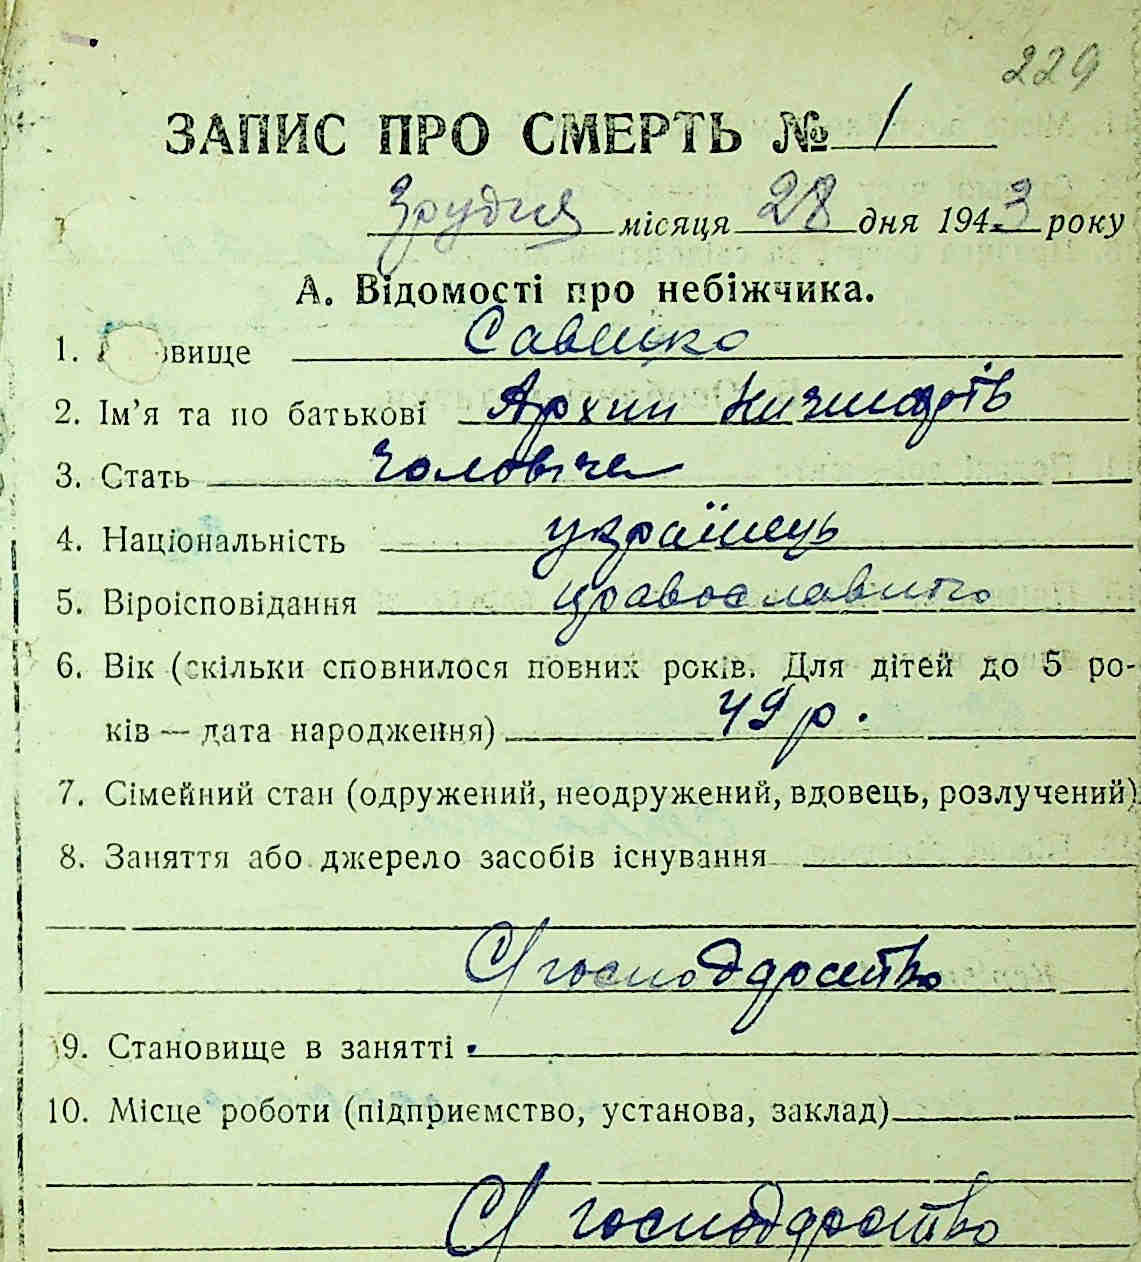 229
ЗАПИС ПРО СМЕРТЬ № 1
Грудня місяця 28 дня 1943 року
А. Відомості про небіжчика.
1. вище Савицко
2. Ім'я та по батькові Архип
3. Стать чоловіча
4. Національність українець
5. Віроісповідання православного
6. Вік (скільки сповнилося повних років. Для дітей до 5 ро-
ків — дата народження) 49 р.
7. Сімейний стан (одружений, неодружений, вдовець, розлучений)
8. Заняття або джерело засобів існування
С/господарство
9. Становище в занятті
10. Місце роботи (підприємство, установа, заклад)
С/господарство